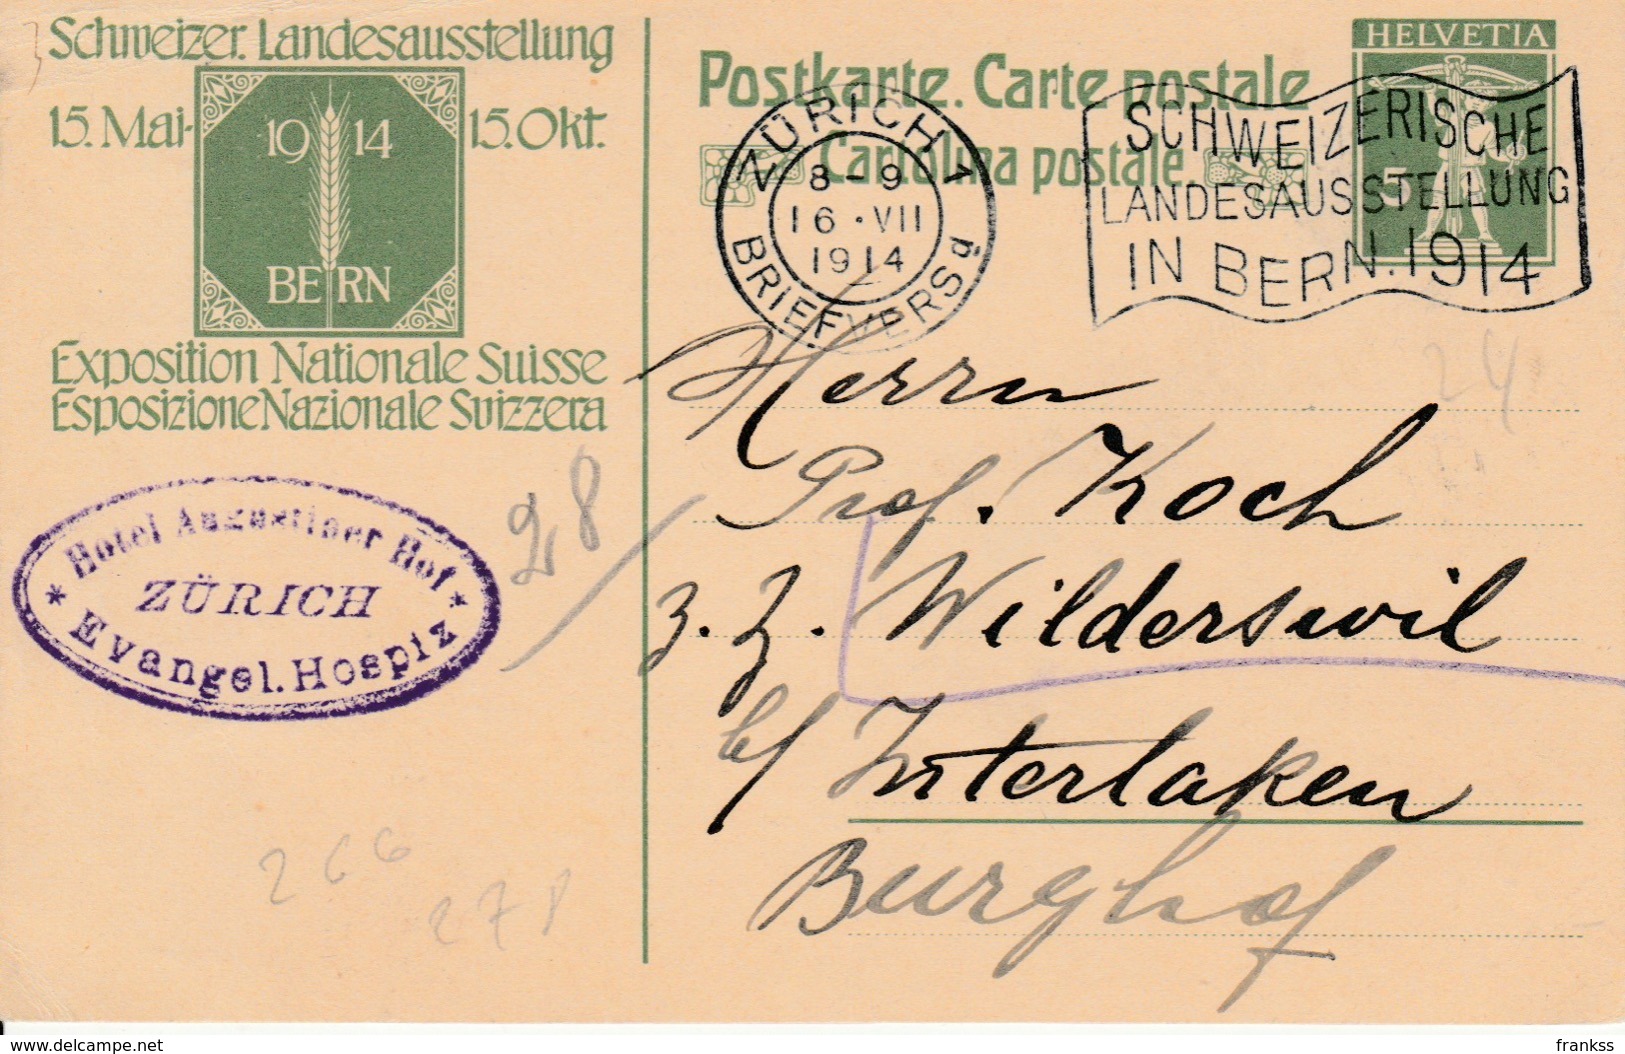 Schweizer. Landesausstellung
15. Mai - 15. Okt.
19 14
BERN
Exposition Nationale Suisse
Esposizione Nazionale Svizzera
Postkarte. Carte postale
Cartolina postale.
HELVETIA
5
ZÜRICH 1
8-9
16·VII
1914
BRIEFVERSd
SCHWEIZERISCHE
LANDESAUSSTELLUNG
IN BERN. 1914
24
Herrn
Prof. Koch
z. Z. Wilderswil
b/ Interlaken
Burghof
* Hotel Augustiner Hof *
ZÜRICH
Evangel. Hospiz
28/
266
278
delcampe.net
frankss